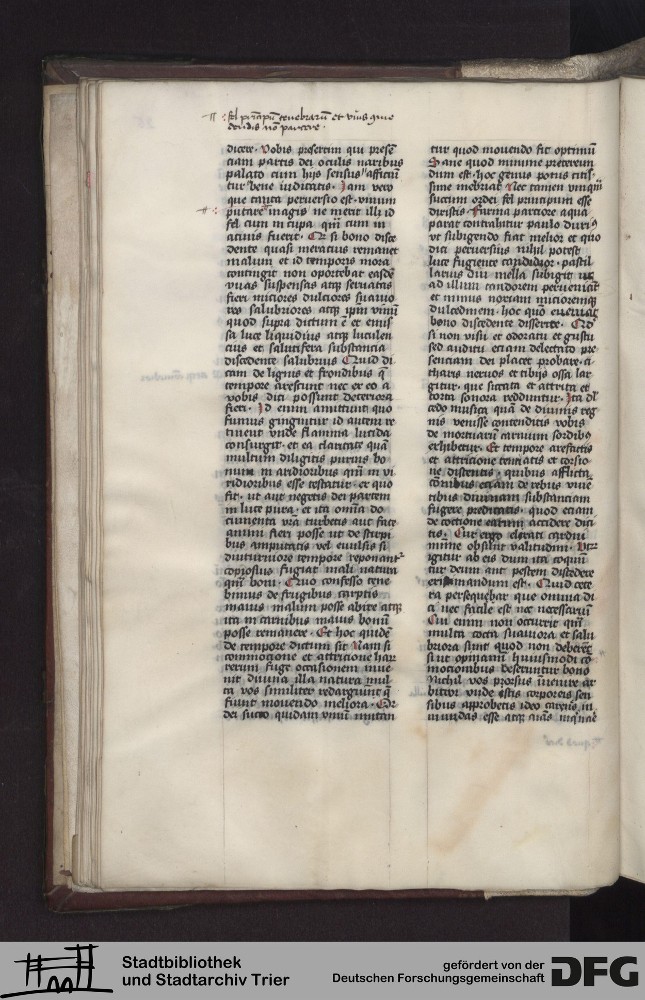 dicere. Vobis presertim qui presen
ciam partis dei oculis naribus
palato cum hijs sensus afficiun
tur bene iudicatis. Iam vero
que tanta perversio est. vinum
putare magis ne metit illi id
fel cum in cupa quam cum in
acinis fuerit. Or si bono disce
dente quasi meracius remanet
malum et id temporis mora
contingit non oportebat easdem
vuas suspensas atque servatas
fieri miciores dulciores suavio
res salubriores atque ipsum vinum
quod supra dictum est et emis
sa luce liquidius atque luculen
cius et salutifera substancia
discedente salubrius Quid di
cam de lignis et frondibus que
tempore arescunt nec ex eo a
vobis dici possunt deteriora
fieri. Id enim amittunt quo
fumus gingnitur id autem re
tinent unde flamma lucida
consurgit. et ea claritate quam
multum diligitis purius bo
num in aridioribus quam in vi
ridioribus esse testatur. ex quo
fit. ut aut negetis dei partem
in luce pura. et ita omnia do
cumenta vestra turbetis aut fate
amini fieri posse ut de stirpi
bus amputatis vel evulsis si
diuturniore tempore reponantur
copiosius fugiat mali natura
quam boni. Quo confesso tene
bimus de frugibus carptis
maius malum posse abire atque
ita in carnibus maius bonum
posse remanere. Et hoc quidem
de tempore dictum sit Nam si
commotione et attricione har
rerum fuge occasionem inve
nit divina illa natura mul
ta vos similiter redarguunt que
fiunt movendo meliora. Or
dei succo quidam vinum imitan
tur quod movendo fit optimum
Sane quod minime pretereun
dum est. hoc genus potus citis
sime inebriat Nec tamen vmquam
succum ordei fel principum esse
dixistis. Farina parciore aqua
parat contrahitur paulo durius
ut subigendo fiat melior et quo
dici perversius nihil potest
luce fugiente candidior. pastil
larius diu mella subigit ut
ad illum candorem perveniant
et minus noxiam micioremque
dulcedinem. hoc quo eveniat
bono discedente disserite. Quod
si non visu et odoratu et gustu
sed auditu etiam delectato pre
senciam dei placet probare. ci
tharis nervos et tibijs ossa lar
gitur. que siccata et attrita et
torta sonora redduntur. Ita dul
cedo musica quam de divinis reg
nis venisse contenditis vobis
de mortuarum carnium sordibus
exhibetur. Et tempore arefactis
et attricione tentiatis et torsio
ne distentis. quibus afflictam
conibus eciam de rebus viven
tibus divinam substanciam
fugere predicatis. quod eciam
de coctione earum accidere dici
tis. Cur ergo elixati cardui
nimie obsunt valitudini. Utr
igitur ab eis dum ita coquun
tur deum aut partem discedere
existimandum est. Quid cete
ra persequar que omnia di
ci nec facile est nec necessarium
Cui enim non occurrit quam
multa cocta suaviora et salu
briora sint quod non deberet
si ut opinamini huiusmodi co
mocionibus deseruntur bono
Nichil vos prorsus invenire ar
bitror unde istis corporeis sen
sibus approbetis ideo carnes in
mundas esse atque earum inquinare
Stadtbibliothek
und Stadtarchiv Trier
gefördert von der
Deutschen Forschungsgemeinschaft
DFG